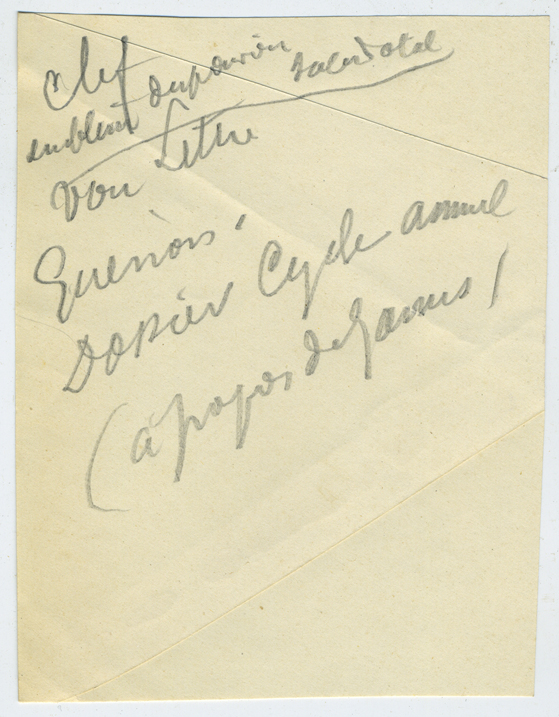 Clef
emblème du pouvoir sacerdotal
Voir Lettre
Guénon
Dossier Cycle annuel
(à propos de Janus)